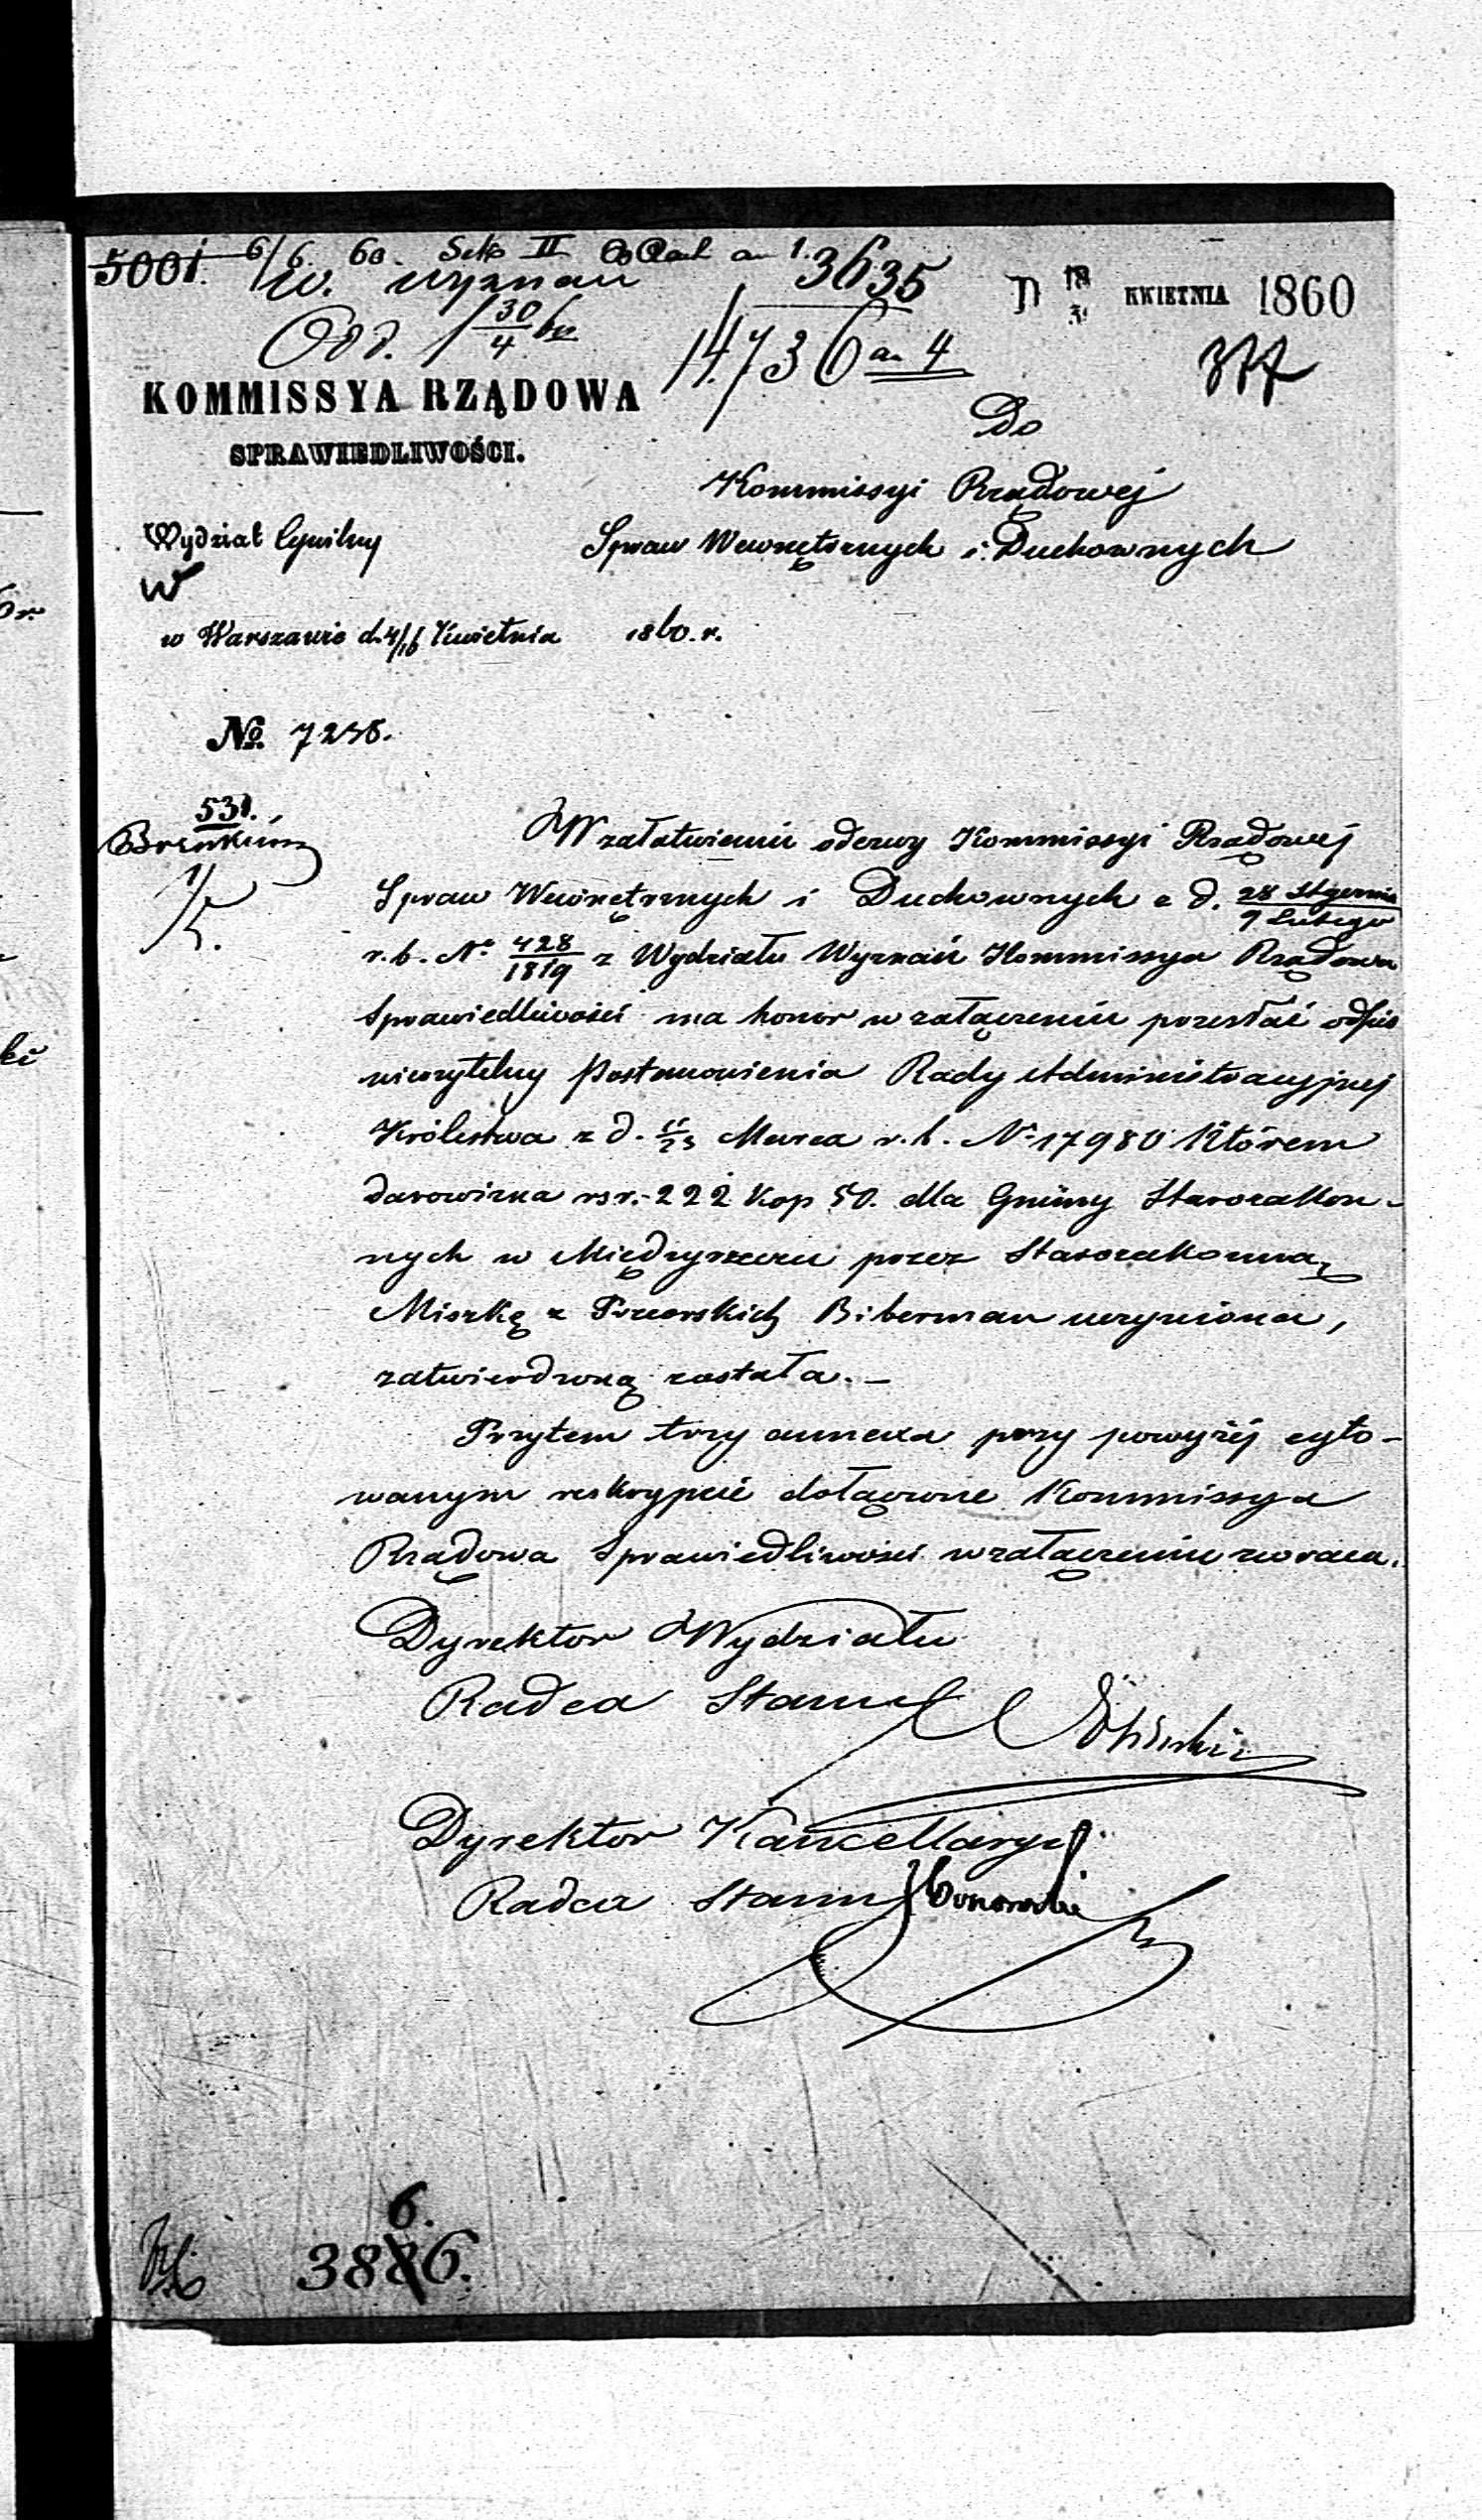 5001. 6/6. 60. Sek II
W. Wyznań 3635
D 18 KWIETNIA 1860
Odd. 30/4
14736 an 4
KOMMISSYA RZĄDOWA
SPRAWIEDLIWOŚCI.
Do
Kommissyi Rządowej
Wydział Cywilny
Spraw Wewnętrznych i Duchownych
w Warszawie d. 4/16 Kwietnia 1860. r.
No. 7238.
531.
W załatwieniu odezwy Kommissyi Rządowej
Spraw Wewnętrznych i Duchownych z d. 28 Stycznia / 9 Lutego
r. b. No 428/1819 z Wydziału Wyznań Kommissya Rządowa
Sprawiedliwości ma honor w załączeniu przesłać odpis
wierzytelny Postanowienia Rady Administracyjnej
Królestwa z d. 11/23 Marca r. b. No 17980 którem
darowizna rsr. 222 kop 50. dla Gminy Starozakon-
nych w Międzyrzecu przez Starozakonną
Miszkę z Biberman uczyniona,
zatwierdzoną została. –
Przytem trzy annexa przy powyżéj cyto-
wanym reskrypcie dołączone Kommissya
Rządowa Sprawiedliwości w załączeniu zwraca.
Dyrektor Wydziału
Radca Stanu
Dyrektor Kancellaryi
Radca Stanu
6.
3886.